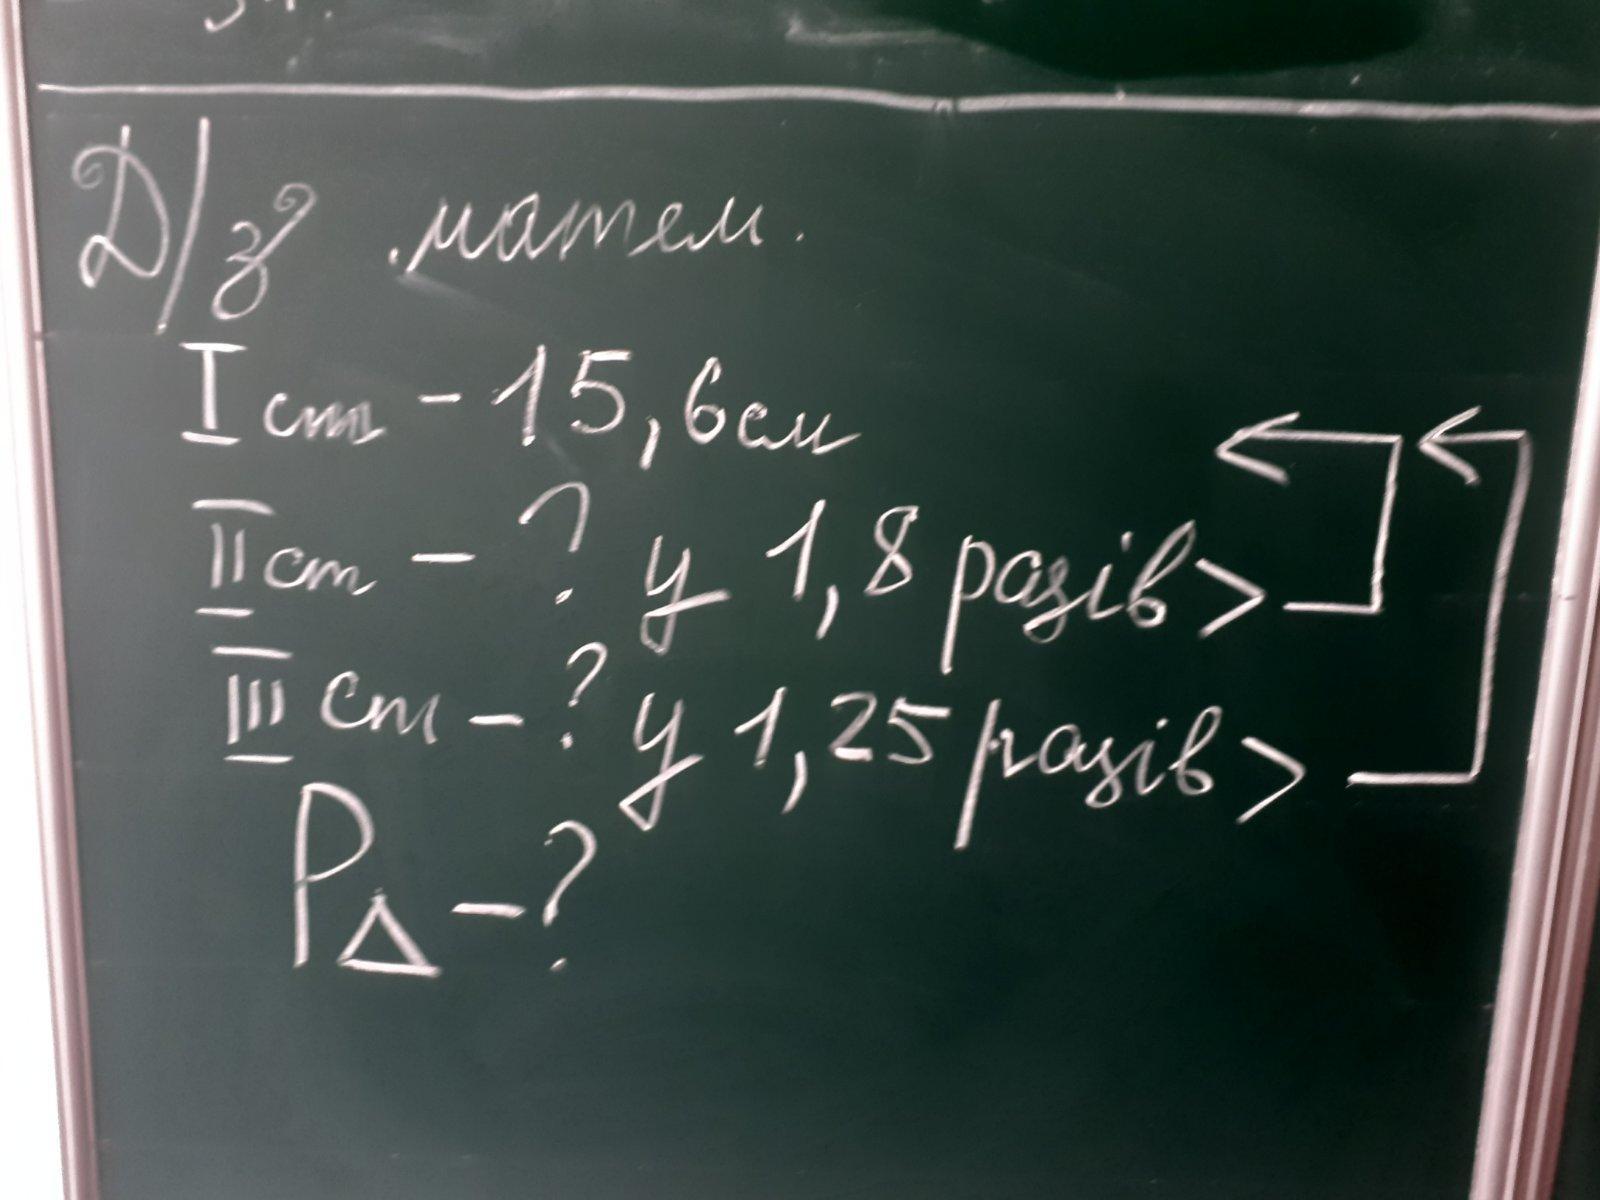 Д/з матем.
I ст - 15,6 см
II ст - ? у 1,8 разів >
III ст - ? у 1,25 разів >
P△ - ?